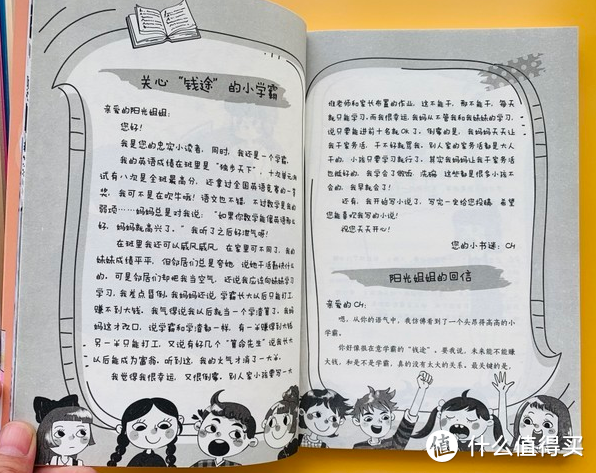 关心“钱途”的小学霸
亲爱的阳光姐姐:
您好!
我是您的忠实小读者,同时,我还是一个学霸,
我的英语成绩在班里是“独步天下”,十次单元测
试有八次是全班最高分,还拿过全国英语竞赛的一等
奖,我可不是在吹牛哦!语文也不错,不过数学是我的
弱项……妈妈总是对我说:“如果你数学能像英语那么
好,妈妈就高兴了。”我听了之后好泄气呀!
在班里我还可以威风威风,在家里可不同了,我的
妹妹成绩平平,但邻居们总是夸她,说她干活勤快什么
的,可是邻居们却把我当空气,还说我应该向妹妹学习
学习,我差点昏倒。我妈妈还说,学霸长大以后只能打工,
赚不到大钱。我气得说我以后就当一个学渣算了,我妈
妈这才改口,说学霸和学渣都一样,有一半赚得到大钱,
另一半只能打工,又说有好几个“算命先生”说我长大
以后能成为富翁,听到这,我的火气才消了一大半。
我觉得我很幸运,又很倒霉,别人家小孩要写一大
堆老师和家长布置的作业,这不能干,那不能干,每天
就只能学习,而我很幸运,我妈从不管我和妹妹的学习,
说只要能进前十名就OK了。倒霉的是,我妈妈天天让
我干家务活,干不好就骂我,别人家的家务活都是大人
干的,小孩只要学习就行了。其实我妈妈让我干家务活
也挺好的,我学会了做饭、洗碗,这些都是很多小孩不
会的,我早就会了!
还有,我开始写小说了,写完一定给您投稿,希望
您能喜欢我写的小说!
祝您天天开心!
您的小书迷:CH
阳光姐姐的回信
亲爱的CH:
嗯,从你的语气中,我仿佛看到了一个头昂得高高的小
学霸。
你好像很在意学霸的“钱途”,要我说,未来能不能赚
大钱,和是不是学霸,真的没有太大的关系,最关键的是,
值 什么值得买